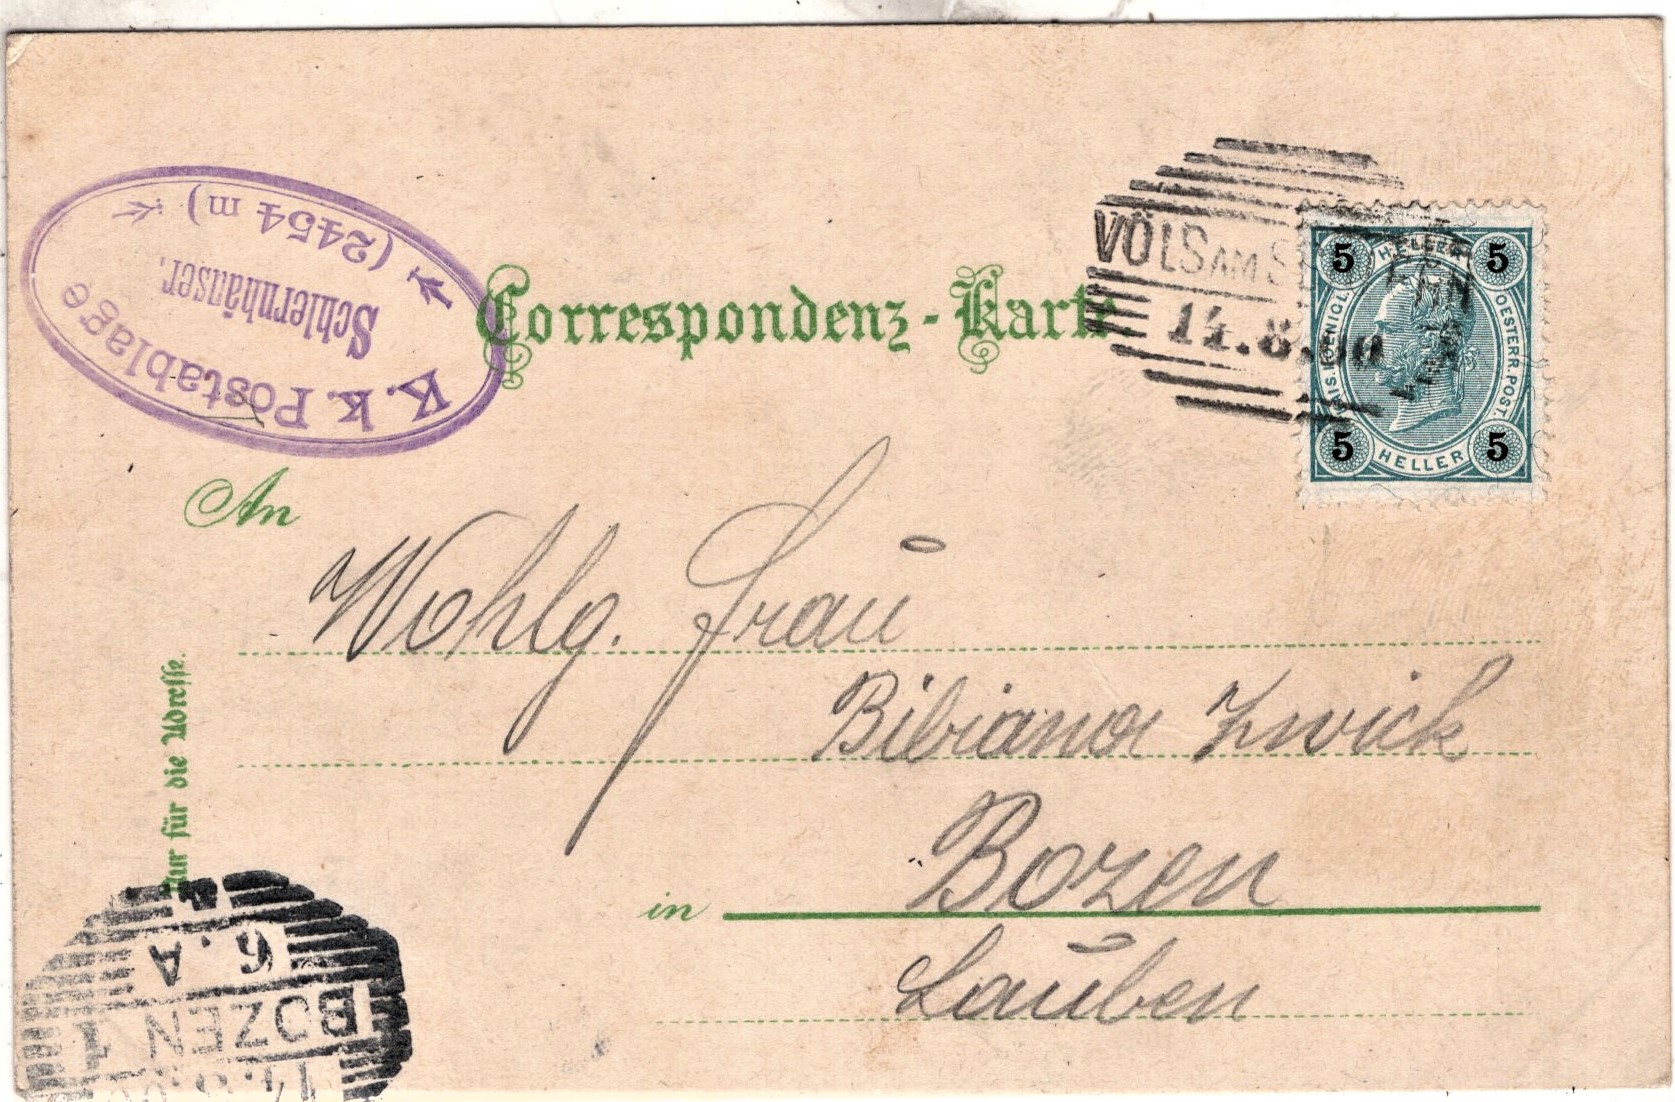 K. k. Postablage
Schlernhäuser.
(2454 m)
Correspondenz-Karte
VÖLS AM S
14.8.00
5 HELLER 5
KAIS. KOENIGL. OESTERR. POST.
5 HELLER 5
An
Wohlg. Frau
Bibiana Zwick
in Bozen
Lauben
Nur für die Adresse.
6.A
BOZEN 1